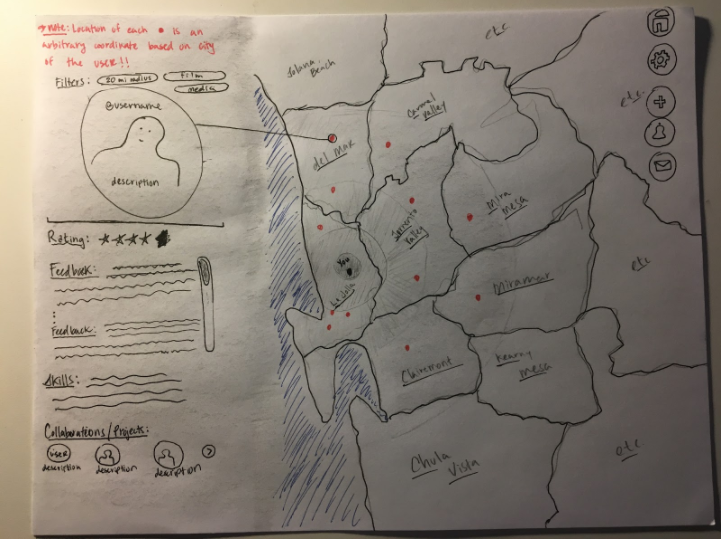 → note: Location of each • is an
arbitrary coordinate based on city
of the user!!
Filters: 20 mi radius Film
media
@username
description
Rating:
Feedback:
Feedback:
Skills:
Collaborations/Projects:
user
description
description
description
Solana
Beach
etc
Carmel
Valley
etc.
del Mar
Mira
Mesa
Sorrento
Valley
You
La Jolla
etc
Miramar
Clairemont
Kearny
Mesa
Chula
Vista
etc